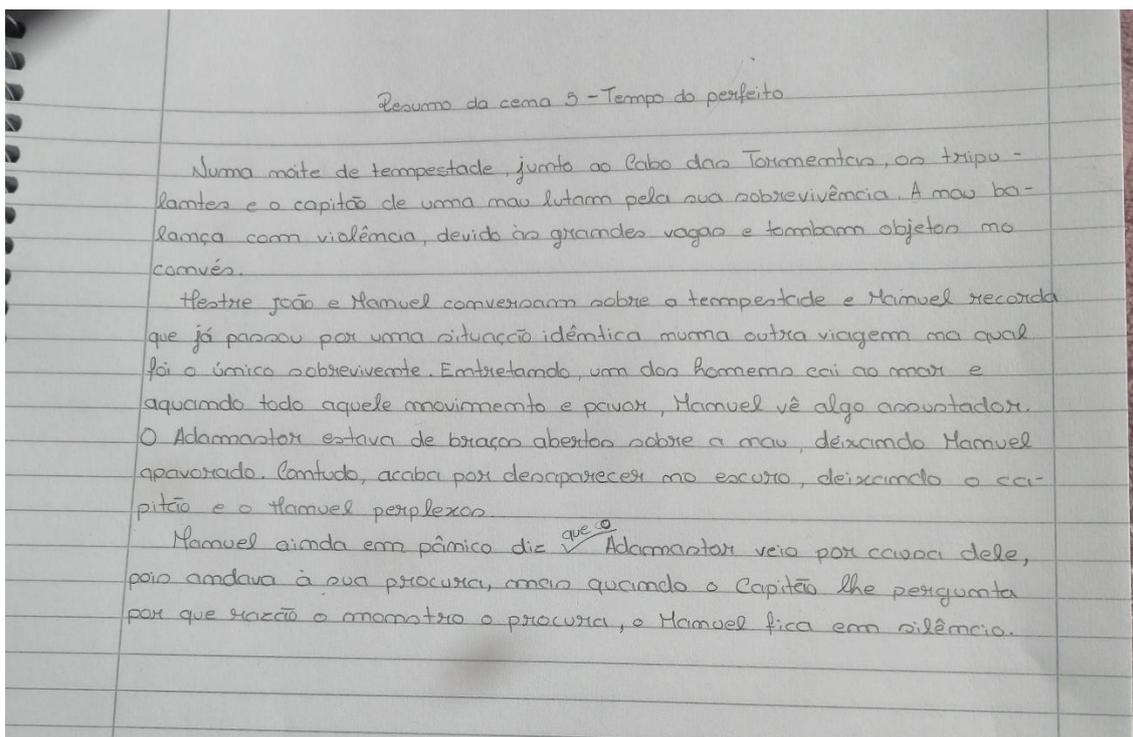 Resumo da cena 5 - Tempo do perfeito
Numa noite de tempestade, junto ao Cabo das Tormentas, os tripu-
lantes e o capitão de uma nau lutam pela sua sobrevivência. A nau ba-
lança com violência, devido às grandes vagas e tombam objetos no
convés.
Mestre João e Manuel conversam sobre a tempestade e Manuel recorda
que já passou por uma situação idêntica numa outra viagem na qual
foi o único sobrevivente. Entretando, um dos homens cai ao mar e
aquando todo aquele movimento e pavor, Manuel vê algo assustador.
O Adamastor estava de braços abertos sobre a nau, deixando Manuel
apavorado. Contudo, acaba por desaparecer no escuro, deixando o ca-
pitão e o Manuel perplexos.
Manuel ainda em pânico diz que o Adamastor veio por causa dele,
pois andava à sua procura, mas quando o Capitão lhe pergunta
por que razão o monstro o procura, o Manuel fica em silêncio.